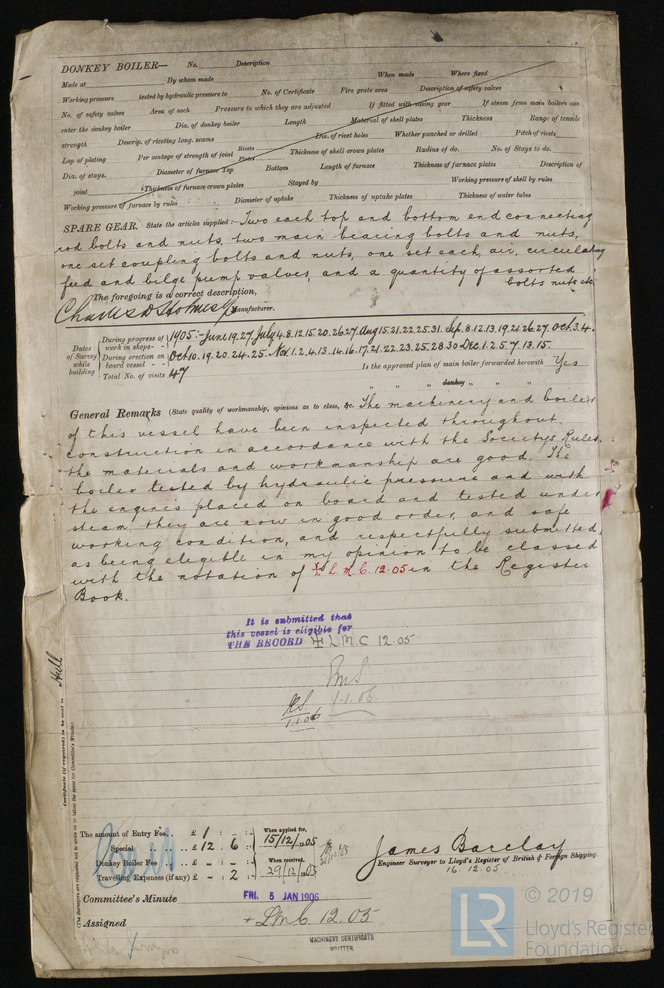 DONKEY BOILER— No. Description
Made at By whom made When made Where fixed
Working pressure tested by hydraulic pressure to No. of Certificate Fire grate area Description of safety valves
No. of safety valves Area of each Pressure to which they are adjusted If fitted with easing gear If steam from main boilers can
enter the donkey boiler Dia. of donkey boiler Length Material of shell plates Thickness Range of tensile
strength Descrip. of riveting long. seams Dia. of rivet holes Whether punched or drilled Pitch of rivets
Lap of plating Per centage of strength of joint Rivets Plates Thickness of shell crown plates Radius of do. No. of Stays to do.
Dia. of stays. Diameter of furnace Top Bottom Length of furnace Thickness of furnace plates Description of
joint Thickness of furnace crown plates Stayed by Working pressure of shell by rules
Working pressure of furnace by rules Diameter of uptake Thickness of uptake plates Thickness of water tubes
SPARE GEAR. State the articles supplied:— Two each top and bottom end connecting
rod bolts and nuts, two main bearing bolts and nuts,
one set coupling bolts and nuts, one set each, air, circulating
feed and bilge pump valves, and a quantity of assorted
bolts nuts etc.
The foregoing is a correct description,
Charles D Holmes & Co Manufacturer.
Dates of Survey while building
During progress of work in shops - - 1905:- June 19.27. July 4.8.12.15.20.26.27. Aug 15.21.22.25.31. Sep. 8.12.13.19.21.26.27. Oct. 3.4.
During erection on board vessel - - Oct 10.19.20.24.25. Nov. 1.2.4.13.14.16.17.21.22.23.25.28.30 Dec. 1.2.5.7.13.15.
Total No. of visits 47 Is the approved plan of main boiler forwarded herewith Yes
" " " donkey " " "
General Remarks (State quality of workmanship, opinions as to class, &c. The machinery and boiler
of this vessel have been inspected throughout
construction in accordance with the Society's Rules,
the materials and workmanship are good. The
boiler tested by hydraulic pressure and with
the engines placed on board and tested under
steam they are now in good order, and safe
working condition, and respectfully submitted
as being eligible in my opinion to be classed
with the notation of + L.M.C. 12.05 in the Register
Book.
It is submitted that
this vessel is eligible for
THE RECORD + L.M.C 12.05
1.1.06.
1.1.06
Certificate (if required) to be sent to Hull
(The Surveyors are requested not to write on or below the space for Committee's Minute.)
The amount of Entry Fee .. £ 1 : - : - When applied for,
Special .. .. £ 12 : 6 : 15/12/1905
Donkey Boiler Fee .. .. £ - : - : When received,
Travelling Expenses (if any) £ - : 2 : 29/12/05
James Barclay
Engineer Surveyor to Lloyd's Register of British & Foreign Shipping.
16.12.05
Committee's Minute FRI. 5 JAN 1906
Assigned + LMC 12.05
MACHINERY CERTIFICATE
WRITTEN.
© 2019
LR Lloyd's Register
Foundation